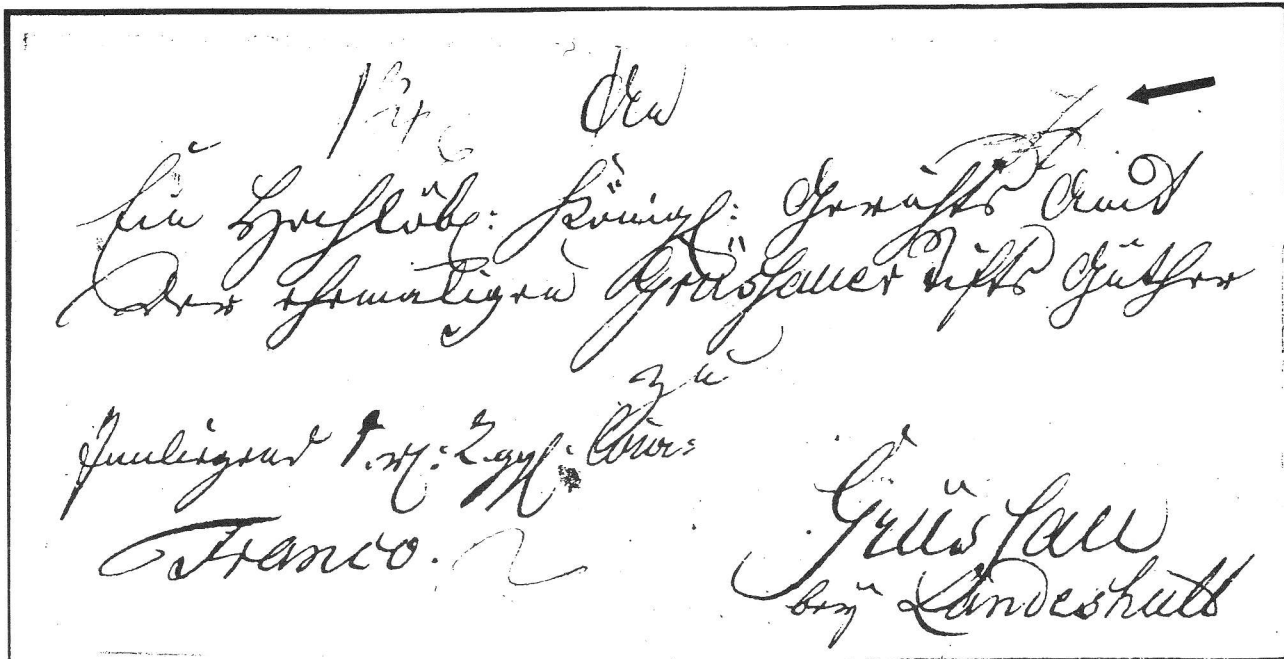 An
Ein Hochlöbl: Königl: Gerichts Amt
der ehemaligen Grüshauer Stifts Güther
zu
Innliegend 1 rl: 2 ggl: Cour:
Franco.
Grüshau
bey Landeshutt